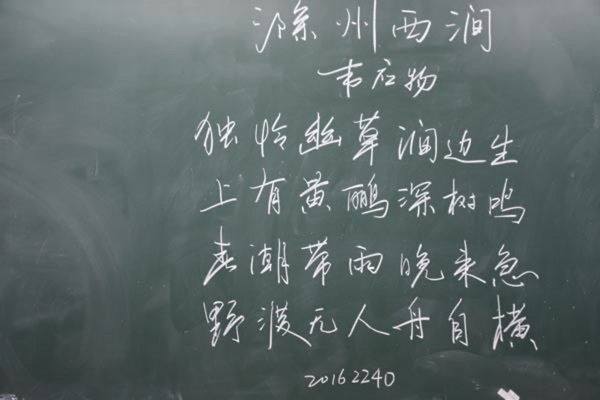 滁州西涧
韦应物
独怜幽草涧边生
上有黄鹂深树鸣
春潮带雨晚来急
野渡无人舟自横
20162240